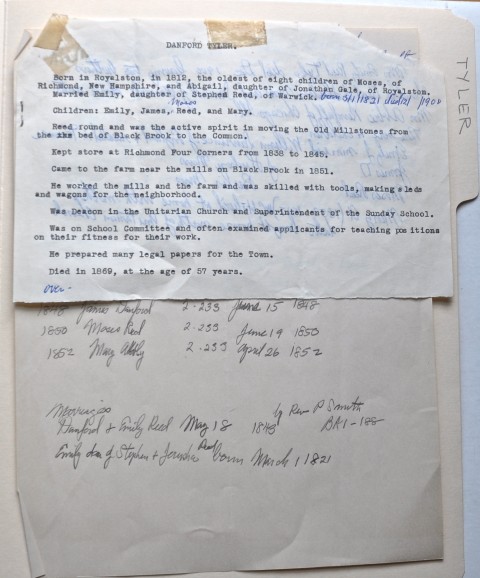 TYLER
DANFORD TYLER.
Born in Royalston, in 1812, the oldest of eight children of Moses, of
Richmond, New Hampshire, and Abigail, daughter of Jonathan Gale, of Royalston.
Married Emily, daughter of Stephen Reed, of Warwick. born 3/1/1821 died 1/21/1900
Moses
Children: Emily, James, Reed, and Mary.
Reed found and was the active spirit in moving the Old Millstones from
the bed of Black Brook to the Common.
Kept store at Richmond Four Corners from 1838 to 1845.
Came to the farm near the mills on Black Brook in 1851.
He worked the mills and the farm and was skilled with tools, making sleds
and wagons for the neighborhood.
Was Deacon in the Unitarian Church and Superintendent of the Sunday School.
Was on School Committee and often examined applicants for teaching positions
on their fitness for their work.
He prepared many legal papers for the Town.
Died in 1869, at the age of 57 years.
over-
1848 James Danford 2.233 June 15 1848
1850 Moses Reed 2.233 June 19 1850
1852 Mary Abby 2.233 April 26 1852
Marriages
Danford & Emily Reed May 18 1845 by Rev P Smith
BA1-188
Emily dau of Stephen & Jerusha Reed born March 1 1821